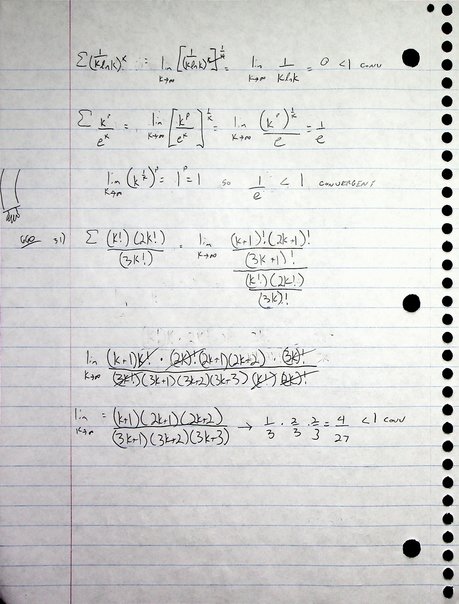 Σ(1/(k ln k))^k = lim k→∞ [(1/(k ln k))^k]^(1/k) = lim k→∞ 1/(k ln k) = 0 < 1 conv
Σ k^p/e^k = lim k→∞ [k^p/e^k]^(1/k) = lim k→∞ (k^p)^(1/k)/e = 1/e
lim k→∞ (k^(1/k))^p = 1^p = 1 so 1/e < 1 CONVERGENT
31) Σ (k!)(2k!)/(3k!) = lim k→∞ ((k+1)!(2k+1)!/(3k+1)!)/((k!)(2k!)/(3k)!)
lim k→∞ (k+1)k! · (2k)!(2k+1)(2k+2) · (3k)!/((3k!)(3k+1)(3k+2)(3k+3)(k!)(2k)!)
lim k→∞ = (k+1)(2k+1)(2k+2)/((3k+1)(3k+2)(3k+3)) → 1/3 · 2/3 · 2/3 = 4/27 < 1 conv